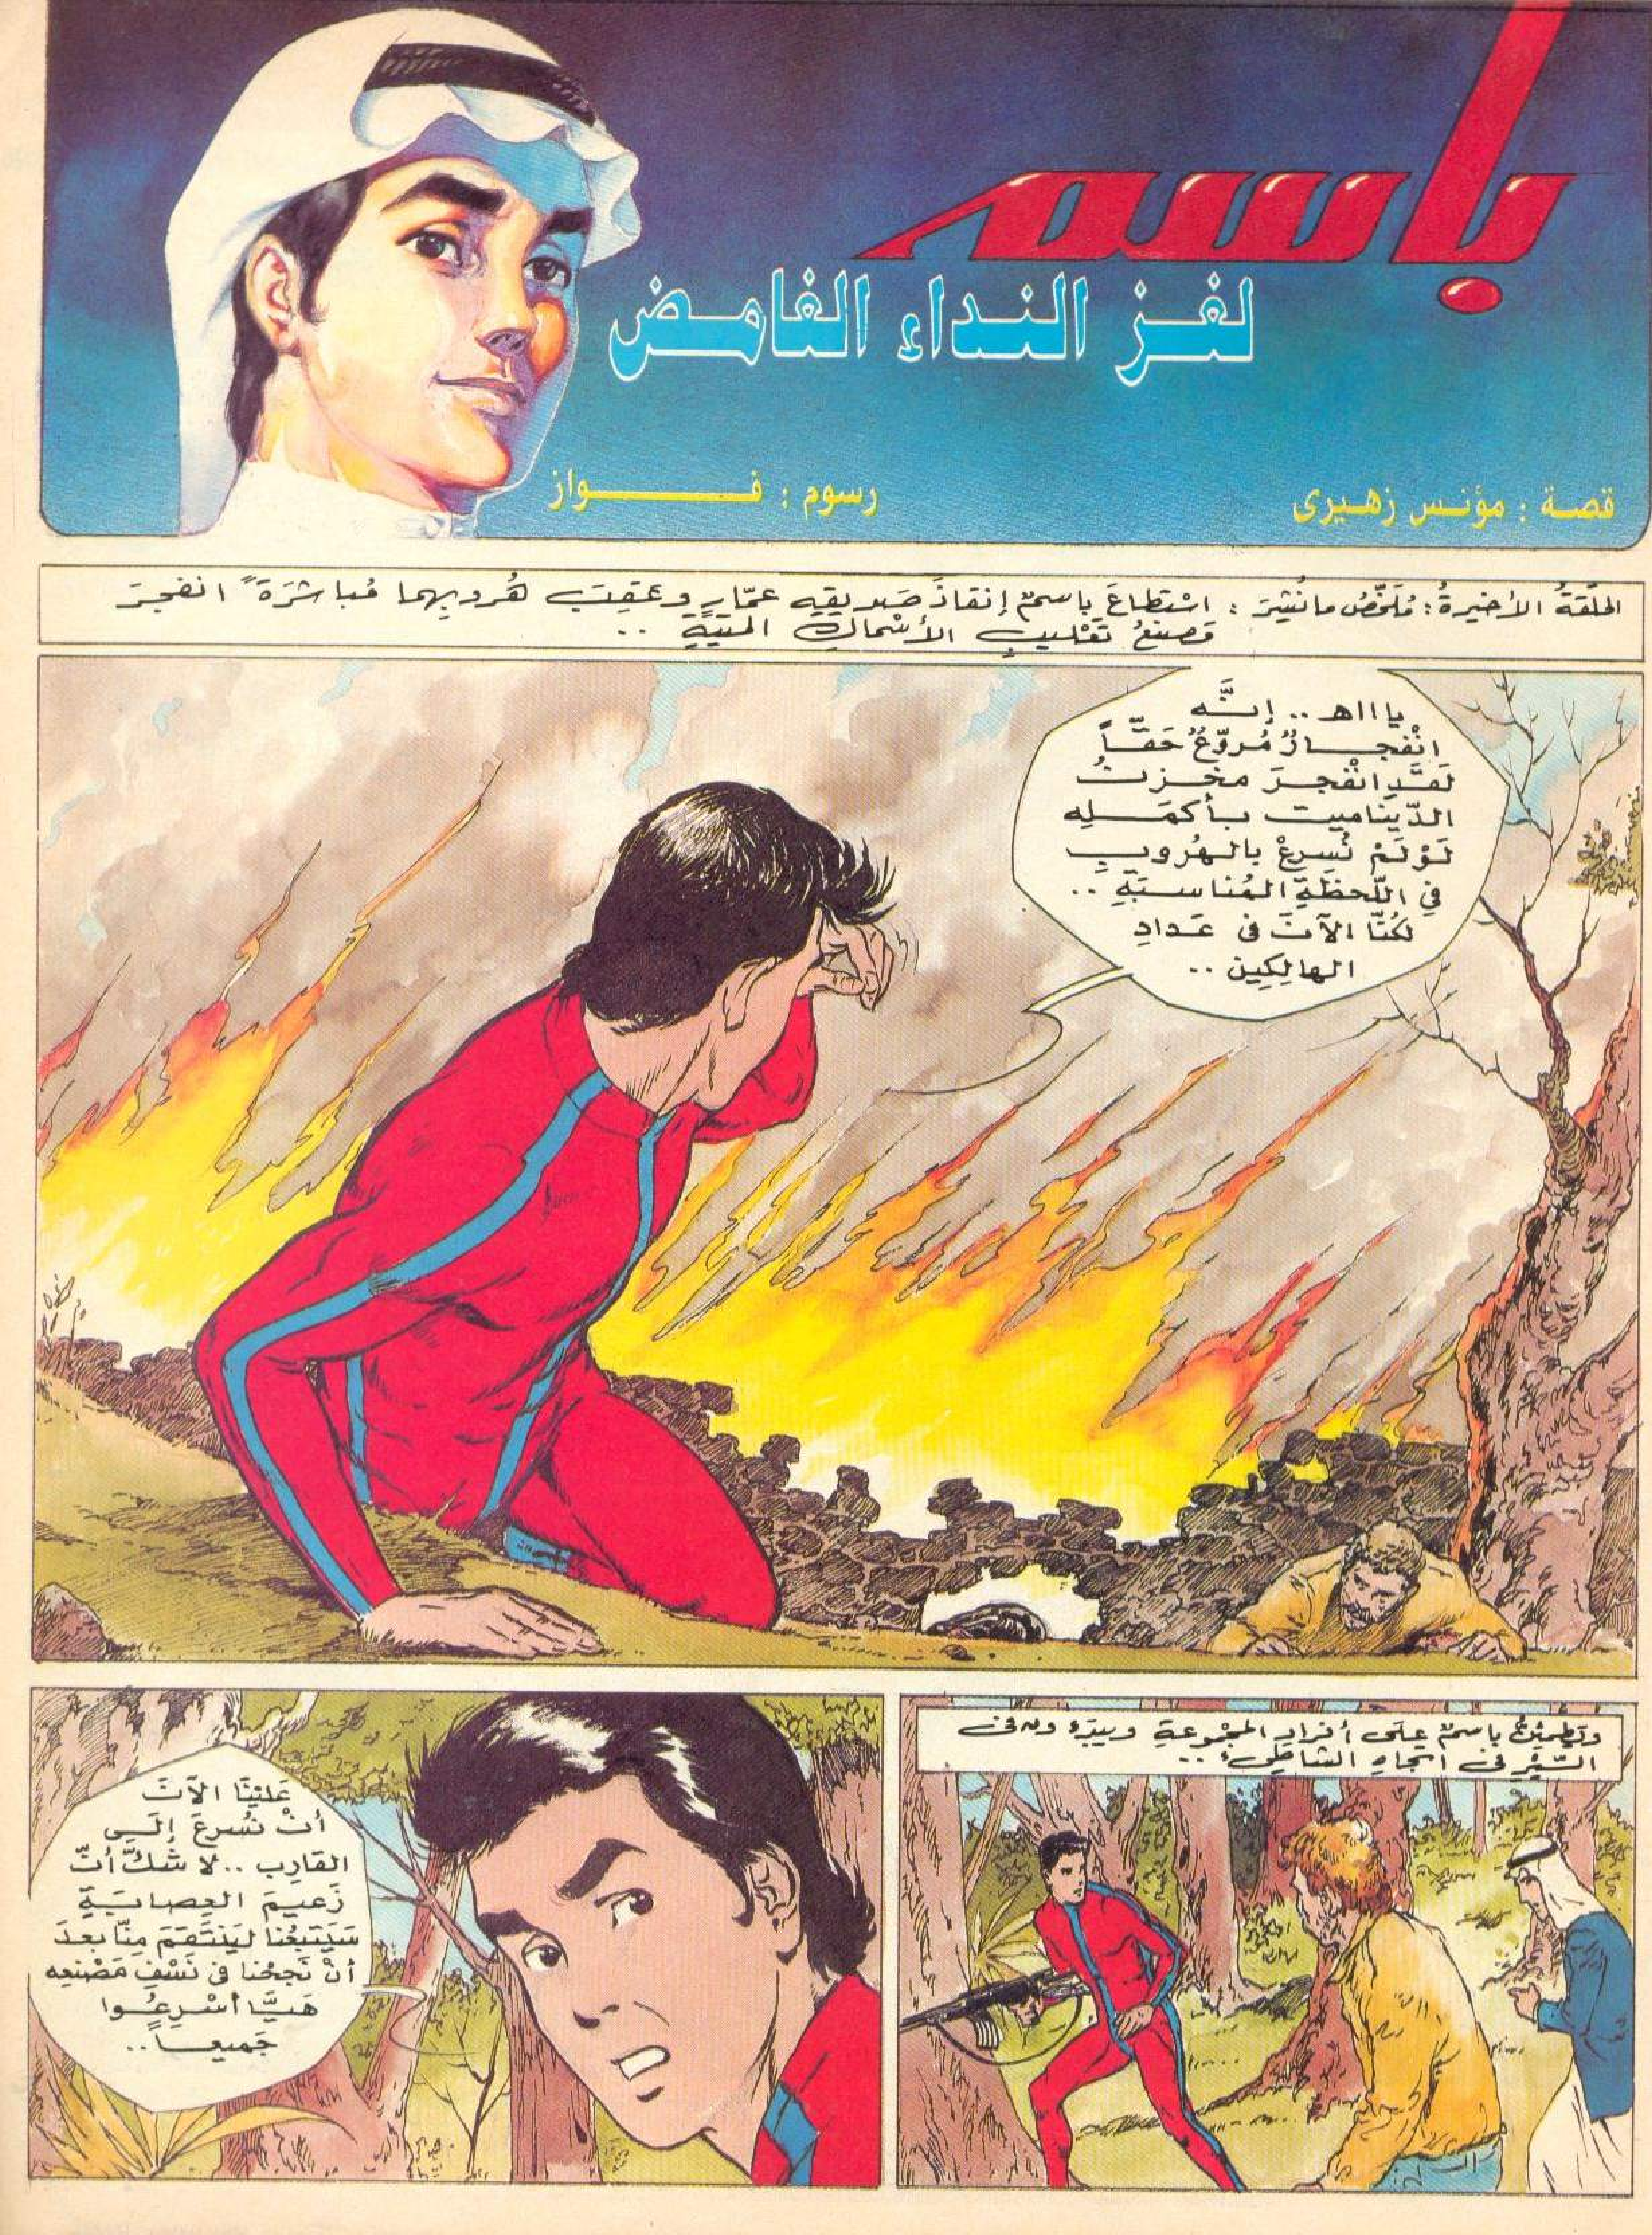 باسم
لغز النداء الغامض
قصة : مؤنس زهيرى
رسوم : فواز
الحلقة الأخيرة : مُلَخّصُ ما نُشِرَ : اسْتطاعَ باسمٌ إنقاذَ صَديقِه عمّارٍ وعقِبَ هُروبِهما مُباشرَةً انفجرَ
مصنعُ تعْليبِ الأسْماكِ الميّتةِ ..
ياااه .. إنَّه
انْفجارٌ مُروّعٌ حَقّاً
لقَدِ انْفجرَ مخزنُ
الدّيناميت بأكمَلِه
لَوْ لَمْ نُسرِعْ بالهُروبِ
فِي اللّحظَةِ المُناسبَةِ ..
لكُنّا الآنَ فى عَدادِ
الهالِكِين ..
ويَطمئِنُّ باسمٌ علَى أفرادِ المجْموعةِ ويبدَءُونَ فى
السّيْرِ فى اتجاهِ الشاطِئِ ..
عَليْنَا الآنَ
أنْ نُسرِعَ إلَى
القارِبِ .. لا شكَّ أنّ
زَعيمَ العِصابَةِ
سَيَتبَعُنا ليَنْتَقمَ مِنّا بعدَ
أنْ نَجحْنا فى نَسْفِ مَصْنعِه
هَيَّا أسْرِعُوا
جَميعاً ..